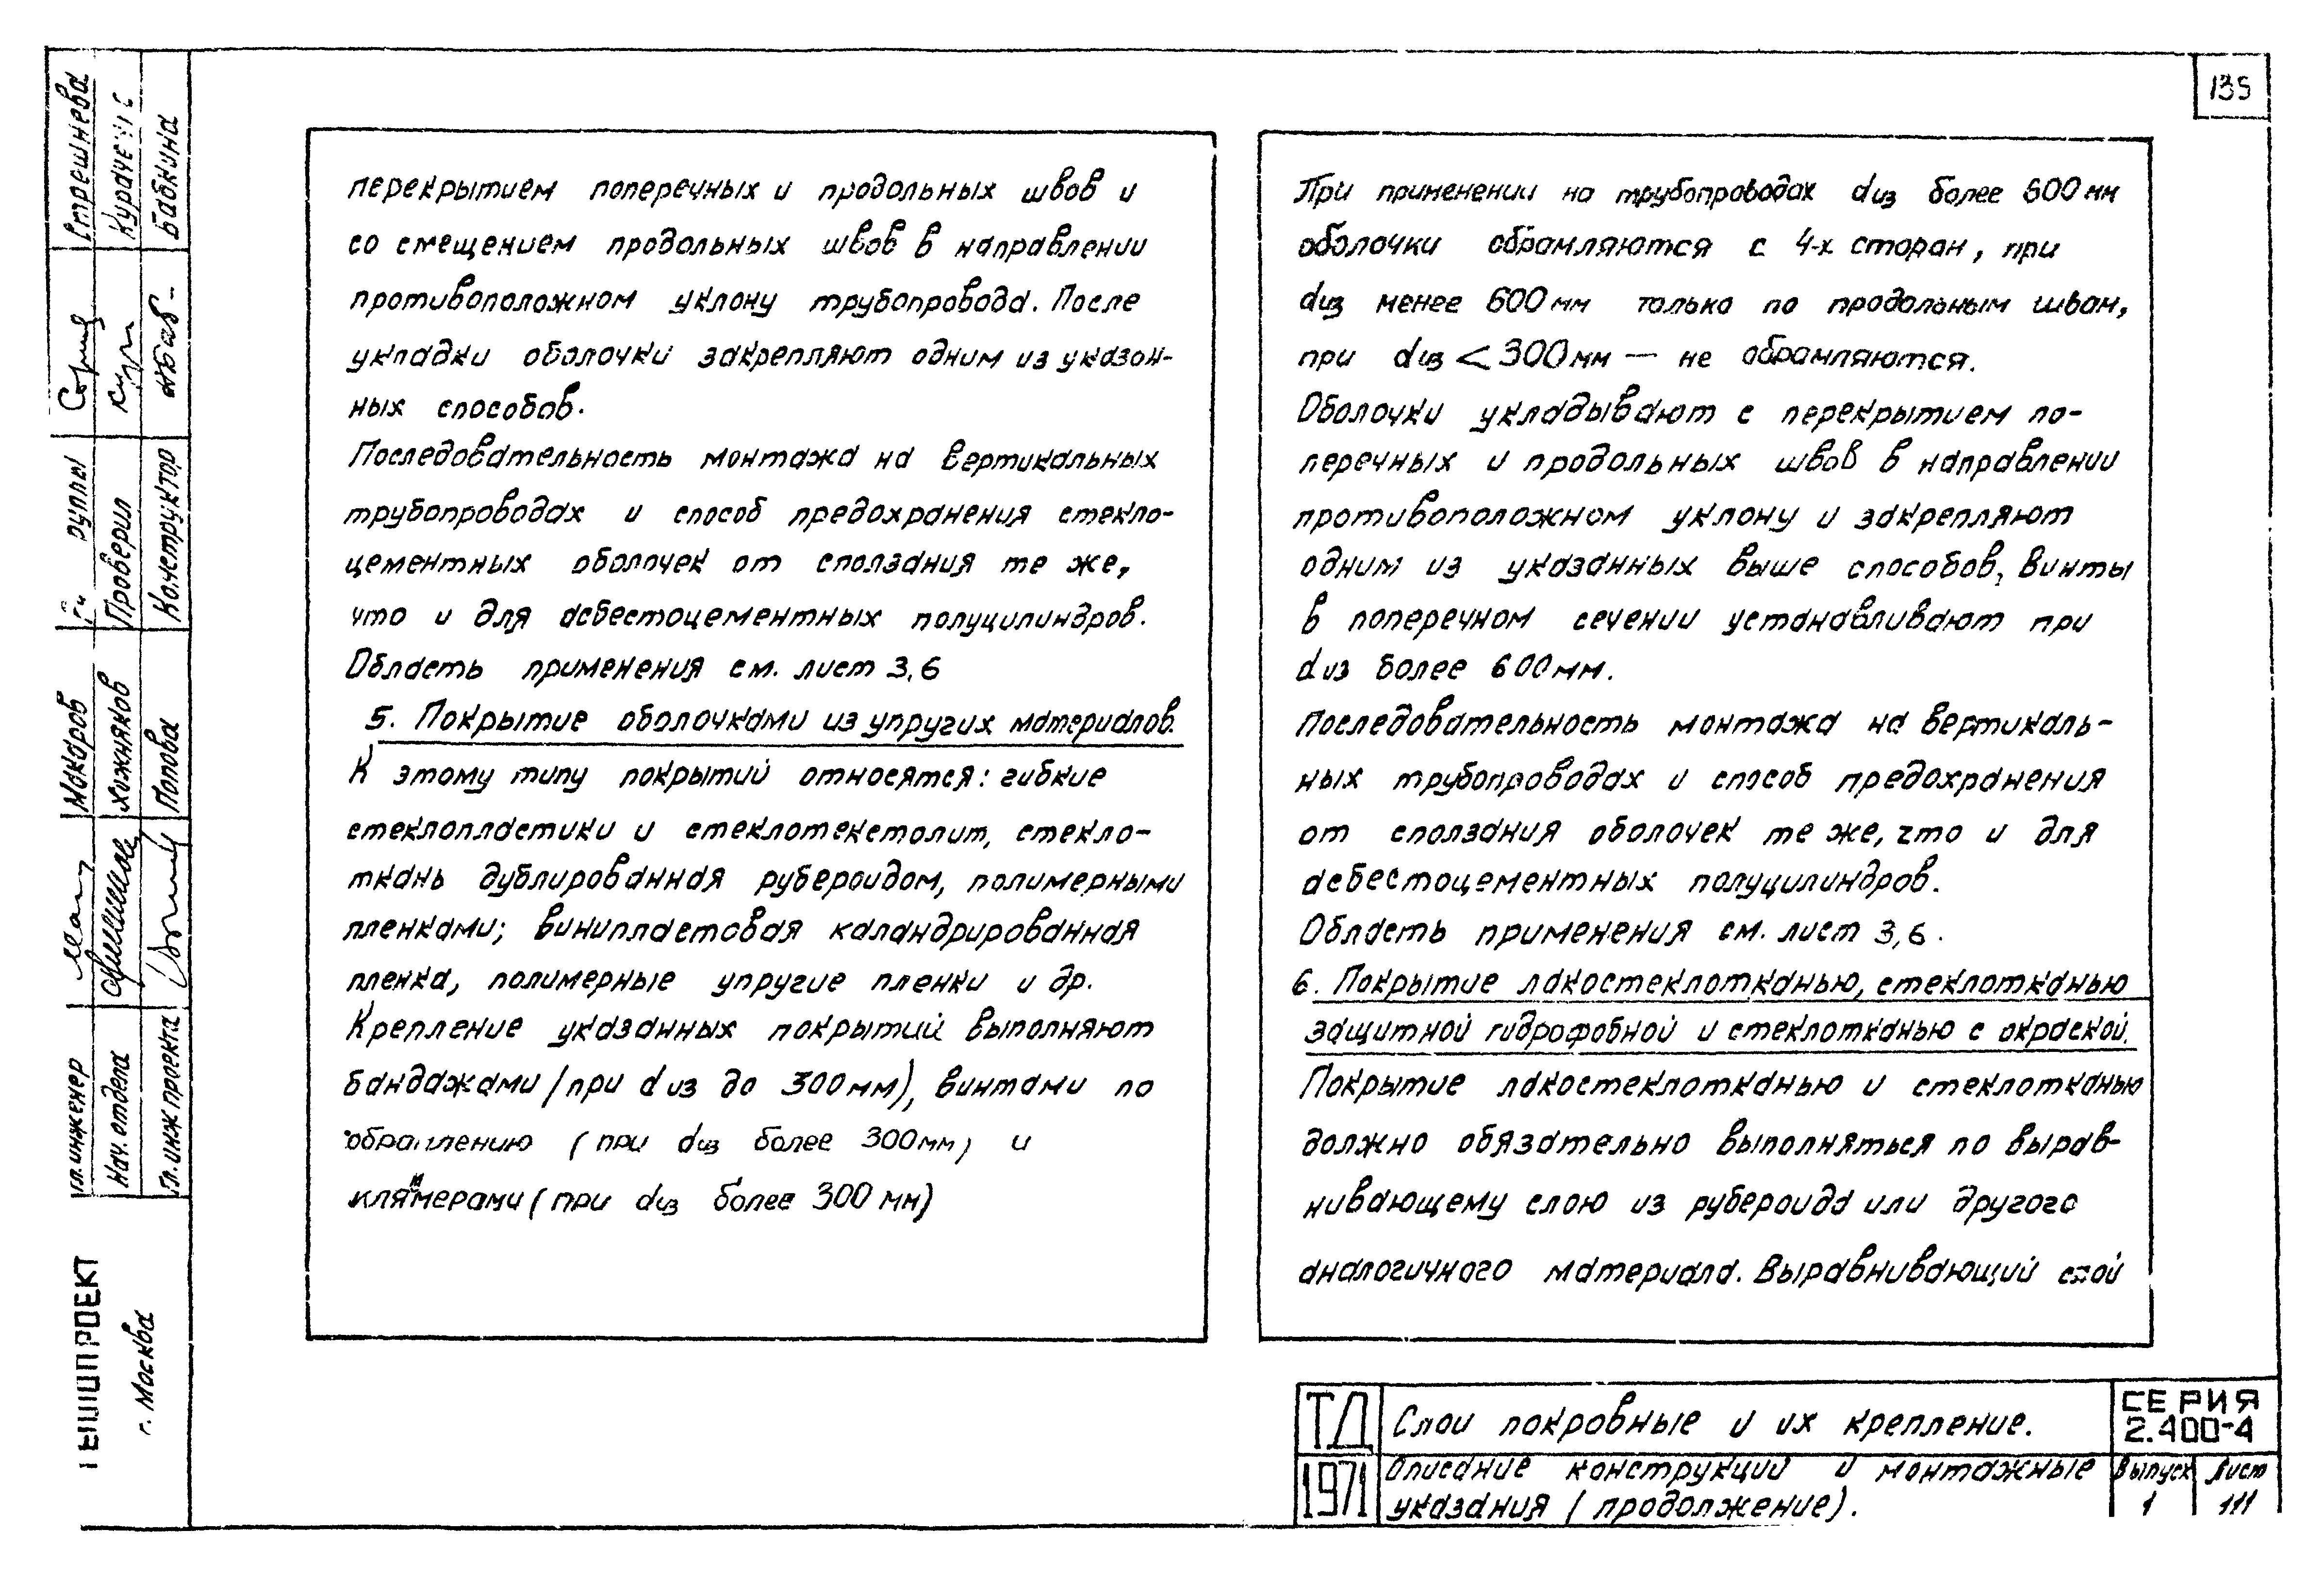 135
перекрытием поперечных и продольных швов и
со смещением продольных швов в направлении
противоположном уклону трубопровода. После
укладки оболочки закрепляют одним из указан-
ных способов.
Последовательность монтажа на вертикальных
трубопроводах и способ предохранения стекло-
цементных оболочек от сползания те же,
что и для асбестоцементных полуцилиндров.
Область применения см. лист 3,6
5. Покрытие оболочками из упругих материалов.
К этому типу покрытий относятся: гибкие
стеклопластики и стеклотекстолит, стекло-
ткань дублированная рубероидом, полимерными
пленками; винипластовая каландрированная
пленка, полимерные упругие пленки и др.
Крепление указанных покрытий выполняют
бандажами (при dиз до 300мм), винтами по
обрамлению (при dиз более 300мм) и
кляммерами (при dиз более 300 мм)
При применении на трубопроводах dиз более 600 мм
оболочки обрамляются с 4-х сторон, при
dиз менее 600 мм только по продольным швам,
при dиз < 300 мм — не обрамляются.
Оболочки укладывают с перекрытием по-
перечных и продольных швов в направлении
противоположном уклону и закрепляют
одним из указанных выше способов, Винты
в поперечном сечении устанавливают при
dиз более 600мм.
Последовательность монтажа на вертикаль-
ных трубопроводах и способ предохранения
от сползания оболочек те же, что и для
асбестоцементных полуцилиндров.
Область применения см. лист 3,6.
6. Покрытие лакостеклотканью, стеклотканью
защитной гидрофобной и стеклотканью с окраской.
Покрытие лакостеклотканью и стеклотканью
должно обязательно выполняться по вырав-
нивающему слою из рубероида или другого
аналогичного материала. Выравнивающий слой
Стрешнева
Бабкина
Проверил
Конструктор
Макаров
Хижняков
Попова
гл. инженер
Нач. отдела
Гл. инж проекта
г. Москва
ТД
1971
Слои покровные и их крепление.
Описание конструкций и монтажные
указания (продолжение).
СЕРИЯ
2.400-4
Выпуск Лист
1 111